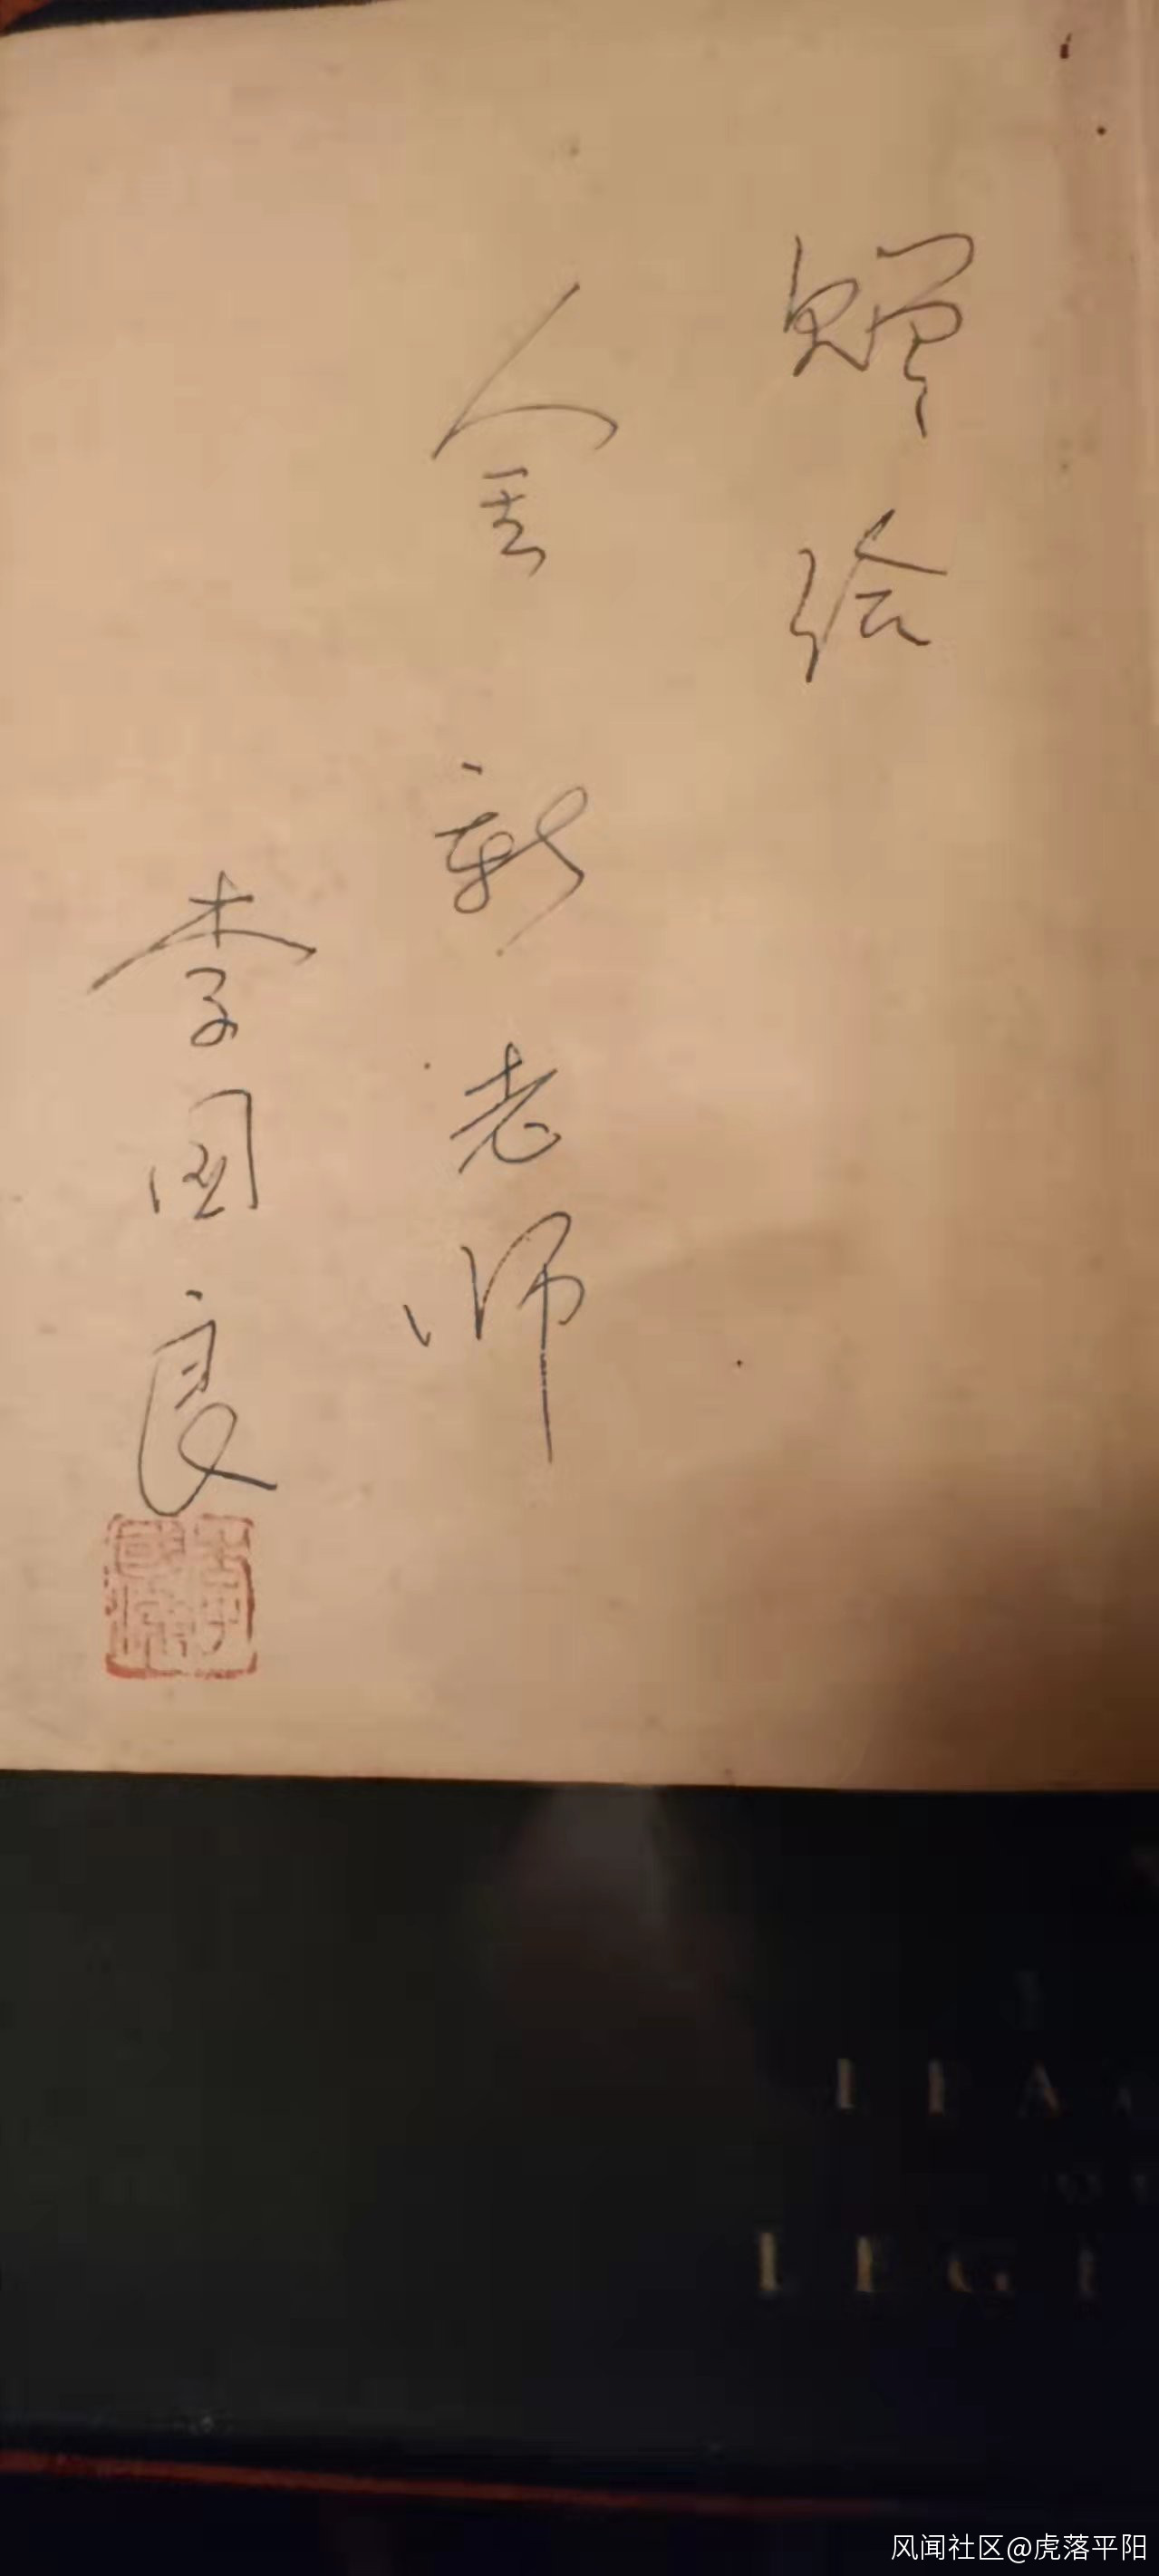 赠给
金新老师
李国良
LEA
LEG
风闻社区@虎落平阳